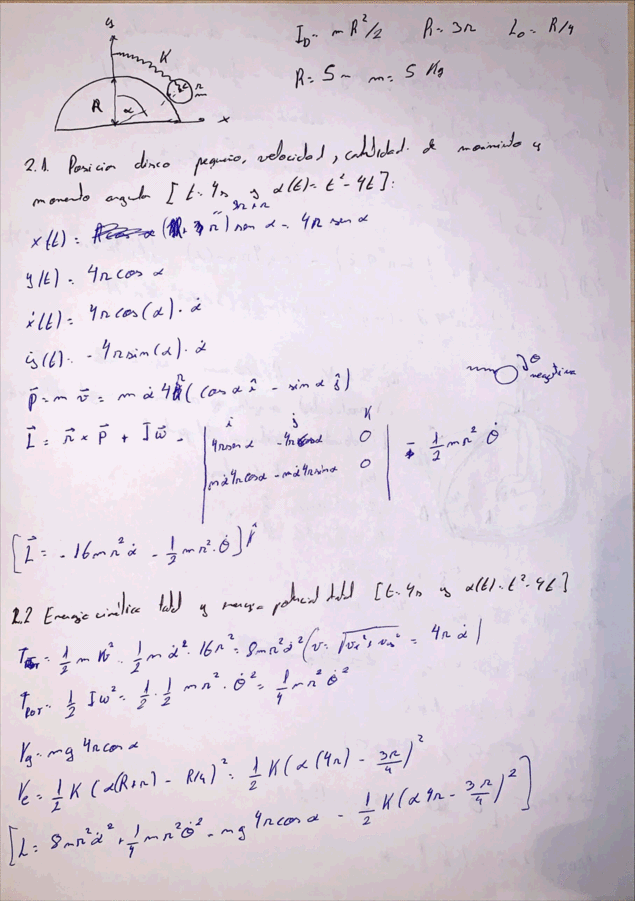 I_D = mR²/2   R = 3r   L₀ = R/4
R = 5m   m = 5 Kg
y
K
r
m
R
α
x
2.1. Posicion disco pequeño, velocidad, cantidad de movimiento y
momento angular [t=4s y α(t) = t² - 4t]:
3r+r
x(t) = sen α = 4r sen α
y(t) = 4r cos α
ẋ(t) = 4r cos(α) · α̇
ẏ(t) = -4r sin(α) · α̇
θ negativa
p⃗ = m v⃗ = m α̇ 4r (cos α î - sin α ĵ)
i   j   K
L⃗ = r⃗ × p⃗ + I ω⃗ = | 4r sen α   4r cos α   0 | - 1/2 m r² θ̇
| m α̇ 4r cos α   -m α̇ 4r sin α   0 |
[L⃗ = -16 m r² α̇ - 1/2 m r² · θ̇] k̂
2.2 Energia cinética total y energia potencial total [t=4s y α(t) = t² - 4t]
= 1/2 m v² = 1/2 m α̇² · 16r² = 8 m r² α̇² (v = = 4r α̇)
T_Rot = 1/2 I ω² = 1/2 · 1/2 m r² · θ̇² = 1/4 m r² θ̇²
V_g = m g 4r cos α
V_e = 1/2 K (α(R+r) - R/4)² = 1/2 K (α(4r) - 3r/4)²
[L = 8 m r² α̇² + 1/4 m r² θ̇² - m g 4r cos α - 1/2 K (α 4r - 3r/4)²]